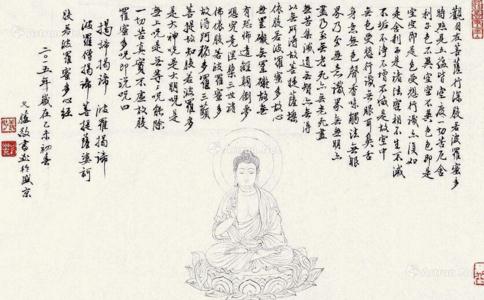 觀自在菩薩行深般若波羅蜜多
時照見五蘊皆空度一切苦厄舍
利子色不異空空不異色色即是
空空即是色受想行識亦復如
是舍利子是諸法空相不生不滅
不垢不淨不增不減是故空中
無色無受想行識無眼耳鼻舌
身意無色聲香味觸法無眼
界乃至無意識界無無明亦無無明
盡乃至無老死亦無老死盡
無苦集滅道無智亦無得
以無所得故菩提薩埵
依般若波羅蜜多故心
無罣礙無罣礙故無
有恐怖遠離顛倒夢
想究竟涅槃三世諸
佛依般若波羅蜜多
故得阿耨多羅三藐三
菩提故知般若波羅蜜多
是大神咒是大明咒是
無上咒是無等等咒能除
一切苦真實不虛故說般若波
羅蜜多咒即說咒曰
揭諦揭諦 波羅揭諦
波羅僧揭諦 菩提薩婆訶
般若波羅蜜多心經
二〇一五年歲在乙未初春
敬書於